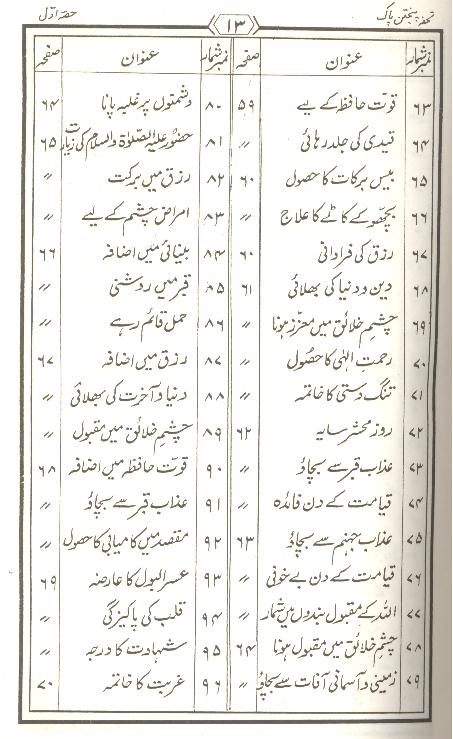 تحفہ پنجتن پاک ۱۳ حصہ اول
نمبر شمار عنوان صفحہ
۶۳ قوّت حافظہ کے لیے ۵۹
۶۴ قیدی کی جلد رہائی 〃
۶۵ بیس برکات کا حصول ۶۰
۶۶ بچھو کے کاٹے کا علاج 〃
۶۷ رزق کی فراوانی ۶۰
۶۸ دین و دنیا کی بھلائی ۶۱
۶۹ چشمِ خلائق میں معزز ہونا 〃
۷۰ رحمتِ الٰہی کا حصُول 〃
۷۱ تنگ دستی کا خاتمہ 〃
۷۲ روز محشر سایہ ۶۲
۷۳ عذاب قبر سے بچاؤ 〃
۷۴ قیامت کے دن فائدہ 〃
۷۵ عذاب جہنم سے بچاؤ ۶۳
۷۶ قیامت کے دن بے خوفی 〃
۷۷ اللہ کے مقبول بندوں میں شمار 〃
۷۸ چشمِ خلائق میں مقبول ہونا ۶۴
۷۹ زمینی و آسمانی آفات سے بچاؤ 〃
نمبر شمار عنوان صفحہ
۸۰ دشمنوں پر غلبہ پانا ۶۴
۸۱ حضُور علیہ الصّلوٰۃ والسلام کی زیارت ۶۵
۸۲ رزق میں برکت 〃
۸۳ امراض چشم کے لیے 〃
۸۴ بینائی میں اضافہ ۶۶
۸۵ قبر میں روشنی 〃
۸۶ حمل قائم رہے 〃
۸۷ رزق میں اضافہ ۶۷
۸۸ دنیا و آخرت کی بھلائی 〃
۸۹ چشمِ خلائق میں مقبول 〃
۹۰ قوّت حافظہ میں اضافہ ۶۸
۹۱ عذاب قبر سے بچاؤ 〃
۹۲ مقصد میں کامیابی کا حصول 〃
۹۳ عسر البول کا عارضہ ۶۹
۹۴ قلب کی پاکیزگی 〃
۹۵ شہادت کا درجہ 〃
۹۶ غربت کا خاتمہ ۷۰